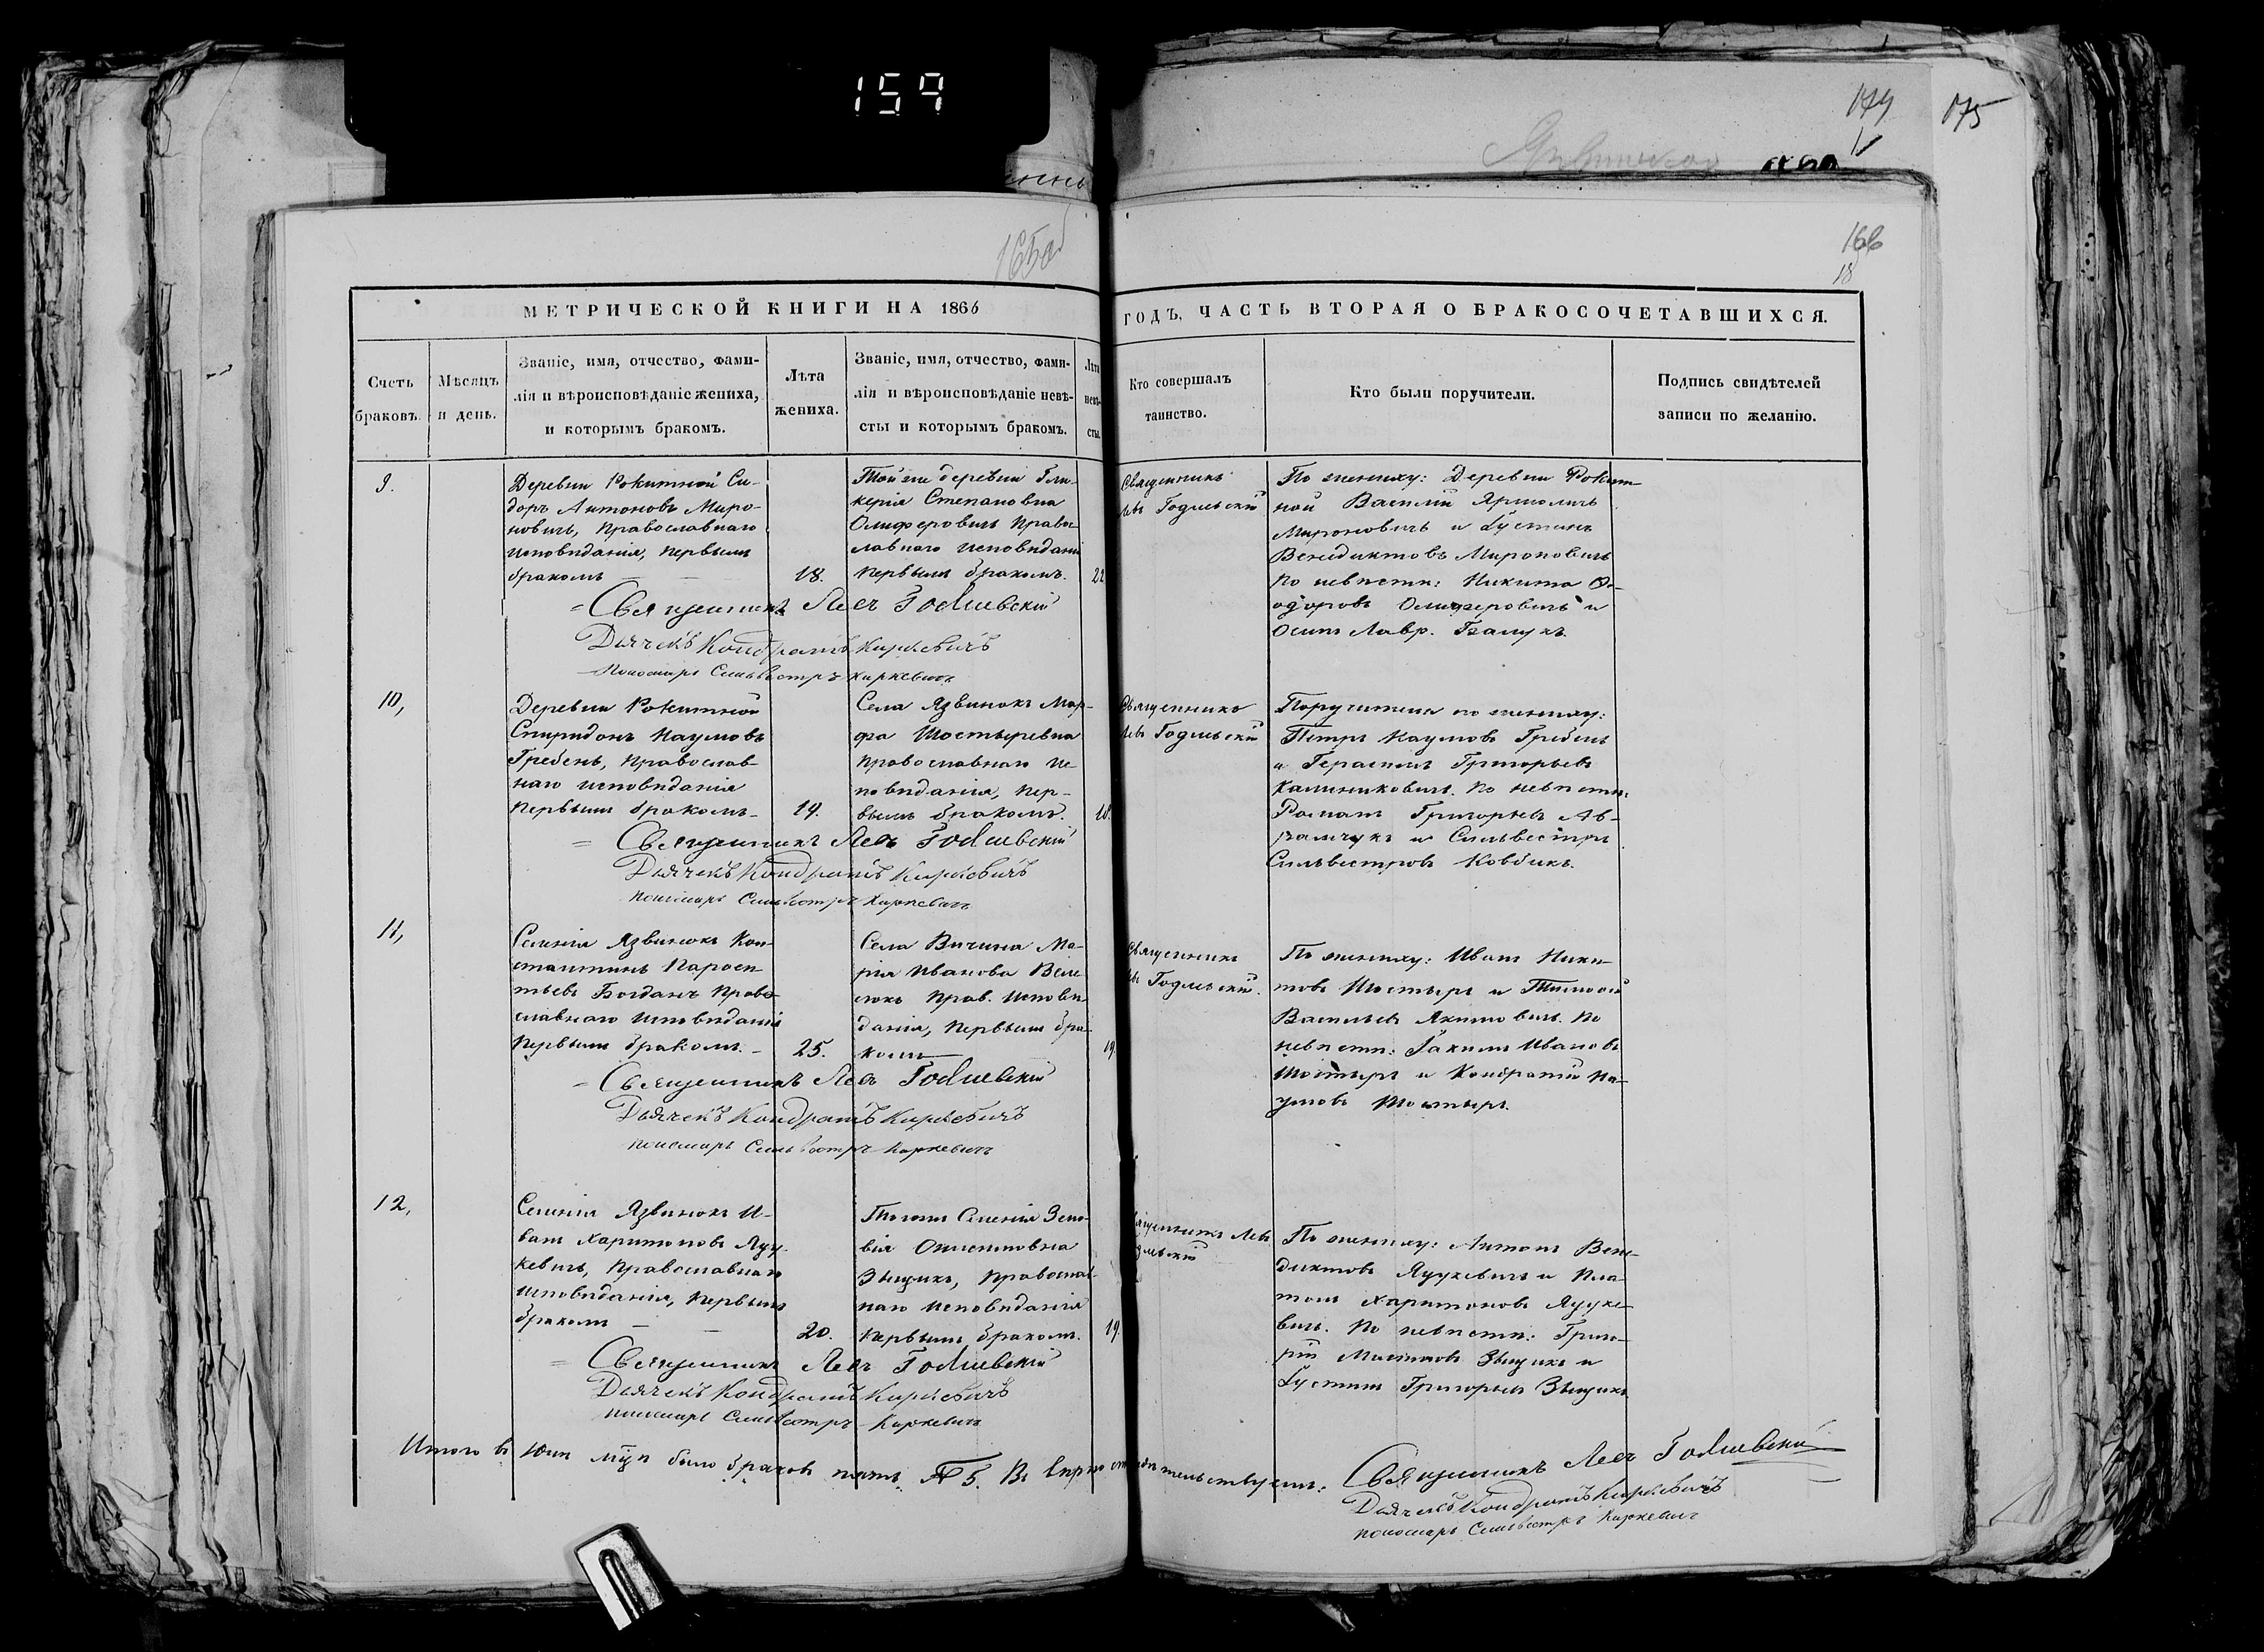 159
174
175
165об
166
18
МЕТРИЧЕСКОЙ КНИГИ НА 1866
ГОДЪ, ЧАСТЬ ВТОРАЯ О БРАКОСОЧЕТАВШИХСЯ.
Счетъ
браковъ.
Мѣсяцъ
и день.
Званіе, имя, отчество, фами-
лія и вѣроисповѣданіе жениха,
и которымъ бракомъ.
Лѣта
жениха.
Званіе, имя, отчество, фами-
лія и вѣроисповѣданіе невѣ-
сты и которымъ бракомъ.
Лѣта
невѣ-
сты.
Кто совершалъ
таинство.
Кто были поручители.
Подпись свидѣтелей
записи по желанію.
9.
Деревни Рокитной Си-
доръ Антоновъ Миро-
новичъ, Православнаго
исповѣданія, первымъ
бракомъ
18.
Тойже деревни Гли-
керія Степановна
Олиферовичъ Право-
славнаго исповѣданія
первымъ бракомъ.
22
Священникъ
Левъ Годлевскій
По жениху: Деревни Рокит-
ной Василій
Мироновичъ и Іустинъ
Венедиктовъ Мироновичъ
По невѣсти: Никита Ѳе-
одоровъ Олиферовичъ и
Осипъ Лавр.
Священникъ Левъ Годлевскій
Дьячекъ Кондратъ Киркевичъ
Пономарь Сильвестръ Киркевичъ
10,
Деревни Рокитной
Спиридонъ Наумовъ
Гребень, Православ-
наго исповѣданія
первымъ бракомъ
19.
Села Язвинокъ Мар-
фа Шостыревна
Православнаго ис-
повѣданія, пер-
вымъ бракомъ.
18.
Священникъ
Левъ Годлевскій
Поручители по жениху:
Петръ Наумовъ Гребень
и Герасимъ Григорьевъ
Калинниковичъ. По невѣсти:
Романъ Григорьевъ Ав-
рамчукъ и Сильвестръ
Сильвестровъ Ковбикъ.
Священникъ Левъ Годлевскій
Дьячекъ Кондратъ Киркевичъ
пономарь Сильвестръ Киркевичъ
11,
Селенія Язвинокъ Кон-
стантинъ
Богданъ Право-
славнаго исповѣданія
первымъ бракомъ.
25.
Села Вичина Ма-
рія Иванова Веле
сюкъ Прав. исповѣ-
данія, первымъ бра-
комъ
19.
Священникъ
Левъ Годлевскій.
По жениху: Иванъ Ники-
товъ Шостыръ и Тимоѳей
Васильевъ Якимовичъ. По
невѣсти: Іакимъ Ивановъ
Шостыръ и Кондратій На-
умовъ Шостыръ.
Священникъ Левъ Годлевскій
Дьячекъ Кондратъ Киркевичъ
пономарь Сильвестръ Киркевичъ
12,
Селенія Язвинокъ И-
ванъ Харитоновъ Луц-
кевичъ, Православнаго
исповѣданія, первымъ
бракомъ
20.
Тогоже Селенія Зено-
вія
Зыщикъ, Православ-
наго исповѣданія
первымъ бракомъ.
19.
Священникъ Левъ
Годлевскій
По жениху: Антонъ Вене-
диктовъ Луцкевичъ и Пла-
тонъ Харитоновъ Луцке-
вичъ. По невѣсти: Григо-
рій Зыщикъ и
Іустинъ Григорьевъ Зыщикъ
Священникъ Левъ Годлевскій
Дьячекъ Кондратъ Киркевичъ
пономарь Сильвестръ Киркевичъ
Итого въ м-цѣ было браковъ пять 5. Вѣрно свидѣтельствуемъ:
Священникъ Левъ Годлевскій
Дьячекъ Кондратъ Киркевичъ
пономарь Сильвестръ Киркевичъ